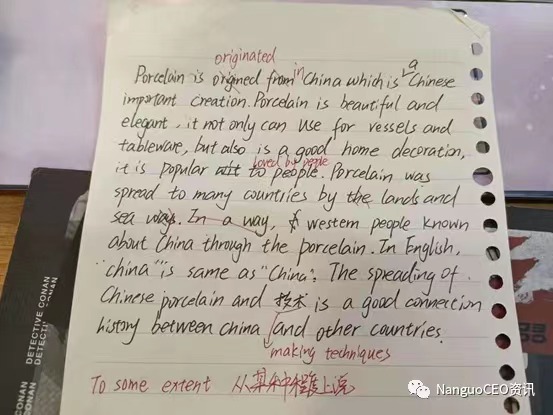 originated
Porcelain is origned from in China which is a Chinese
important creation. Porcelain is beautiful and
elegant, it not only can use for vessels and
tableware, but also is a good home decoration,
loved by people
it is popular to people. Porcelain was
spread to many countries by the lands and
sea ways. In a way, western people known
about China through the porcelain. In English,
"china" is same as "China". The speading of
Chinese porcelain and 技术 is a good connection
history between china and other countries.
making techniques
To some extent 从某种程度上说
DETECTIVE CONAN
DETECTIVE CONAN
NanguoCEO资讯